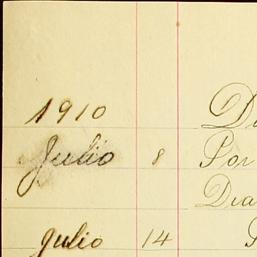 1910
Julio 8 Por
Dia
Julio 14